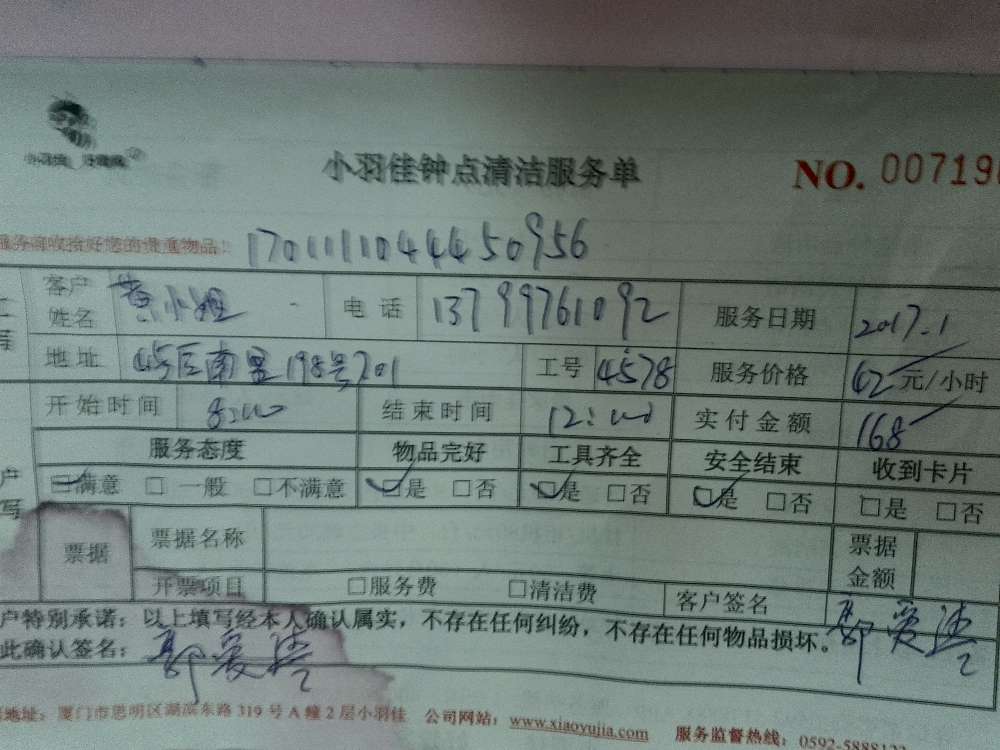 小羽佳钟点清洁服务单 NO. 00719
服务前收捡好您的贵重物品! 1701111044450956
客户姓名 黄小姐 电话 13799761092 服务日期 2017.1
地址 后南里198号201 工号 4578 服务价格 42元/小时
开始时间 8:00 结束时间 12:00 实付金额 168
服务态度 物品完好 工具齐全 安全结束 收到卡片
☑满意 □一般 □不满意 ☑是 □否 ☑是 □否 ☑是 □否 □是 □否
票据 票据名称 票据金额
开票项目 □服务费 □清洁费 客户签名 郭爱
户特别承诺:以上填写经本人确认属实,不存在任何纠纷,不存在任何物品损坏。
此确认签名: 郭爱
地址:厦门市思明区湖滨东路319号A幢2层小羽佳 公司网站:www.xiaoyujia.com 服务监督热线:0592-5888